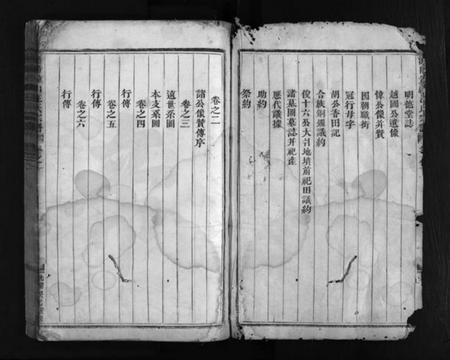 明德堂誌
越國公遺像
像公像并贊
國朝職銜
冠行母字
胡公香田記
合族銅疆議約
俊十六公大引地墳前祀田議約
諸墓圖墓誌并祀產
歷代議據
助約
祭約
卷之二
諸公像贊傳序
卷之三
遠世系圖
本支系圖
卷之四
行傳
卷之五
行傳
卷之六
行傳